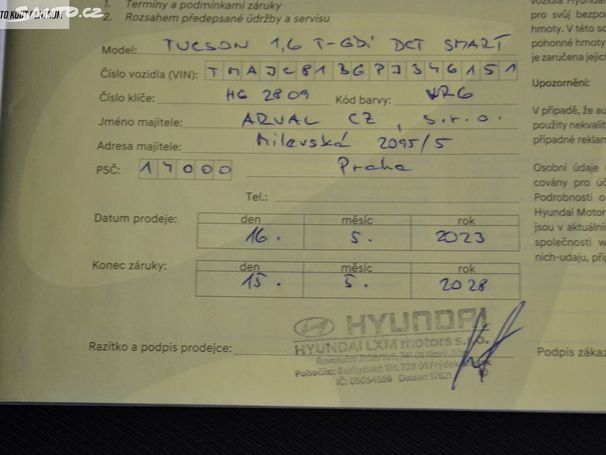 SAUTO.cz
1. Termíny a podmínkami záruky
2. Rozsahem předepsané údržby a servisu
Model: TUCSON 1,6 T-GDI DCT SMART
Číslo vozidla (VIN): TMAJC813GPJ346151
Číslo klíče: HG 2809 Kód barvy:
Jméno majitele: ARVAL CZ, s.r.o.
Adresa majitele: Milevská 2095/5
PSČ: 14000 Praha
Tel.:
Datum prodeje: den měsíc rok
16. 5. 2023
Konec záruky: den měsíc rok
15. 5. 2028
HYUNDAI
HYUNDAI LXM motors s.r.o.
Razítko a podpis prodejce:
Podpis záka
vozidla Hyunda
pro svůj bezpo
hmoty. V této so
pohonné hmoty
je zaručena jejic
Upozornění:
V případě, že au
použity nekvalit
případné reklam
Osobní údaje
covány pro úč
Podrobnosti o
Hyundai Motor
jsou v aktuální
společnosti w
nich-udaju, při